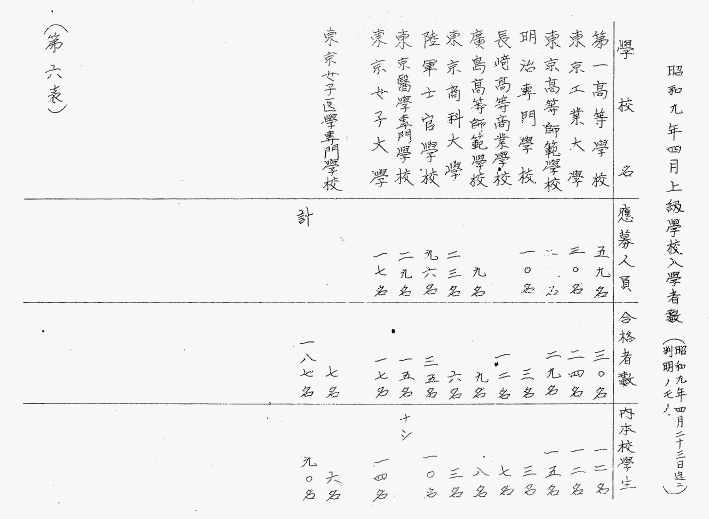 昭和九年四月上級學校入學者數(昭和九年四月二十三日迄ニ
判明ノモノ)
學校名 應募人員 合格者數 内本校學生
第一高等學校 五九名 三〇名 一二名
東京工業大學 三〇名 二四名 一二名
東京高等師範學校 名 二九名 一五名
明治專門學校 一〇名 三名 三名
長崎高等商業學校 一二名 七名
廣島高等師範學校 九名 九名 八名
東京商科大學 二三名 六名 三名
陸軍士官學校 九六名 三五名 一〇名
東京醫學專門學校 二九名 一五名 ナシ
東京女子大學 一七名 一七名 一四名
東京女子医學專門學校 七名 六名
計 一八七名 九〇名
(第六表)